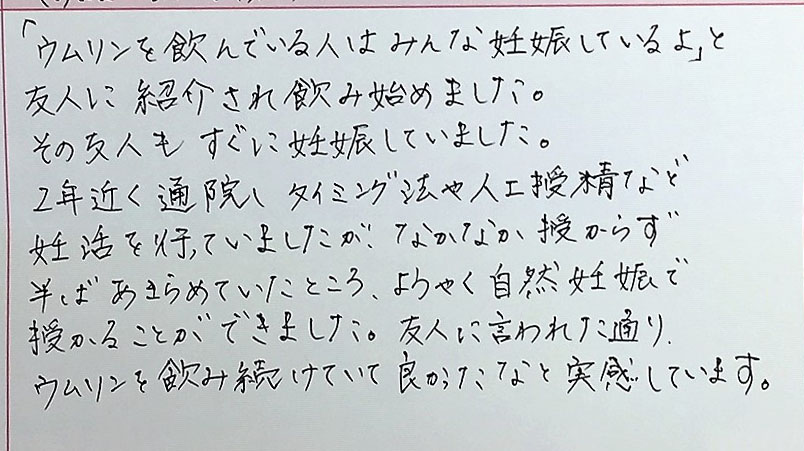 「ウムリンを飲んでいる人はみんな妊娠しているよ」と
友人に紹介され飲み始めました。
その友人もすぐに妊娠していました。
2年近く通院し タイミング法や人工授精など
妊活を行っていましたが、なかなか授からず
半ばあきらめていたところ、ようやく自然妊娠で
授かることができました。友人に言われた通り、
ウムリンを飲み続けていて良かったなと実感しています。